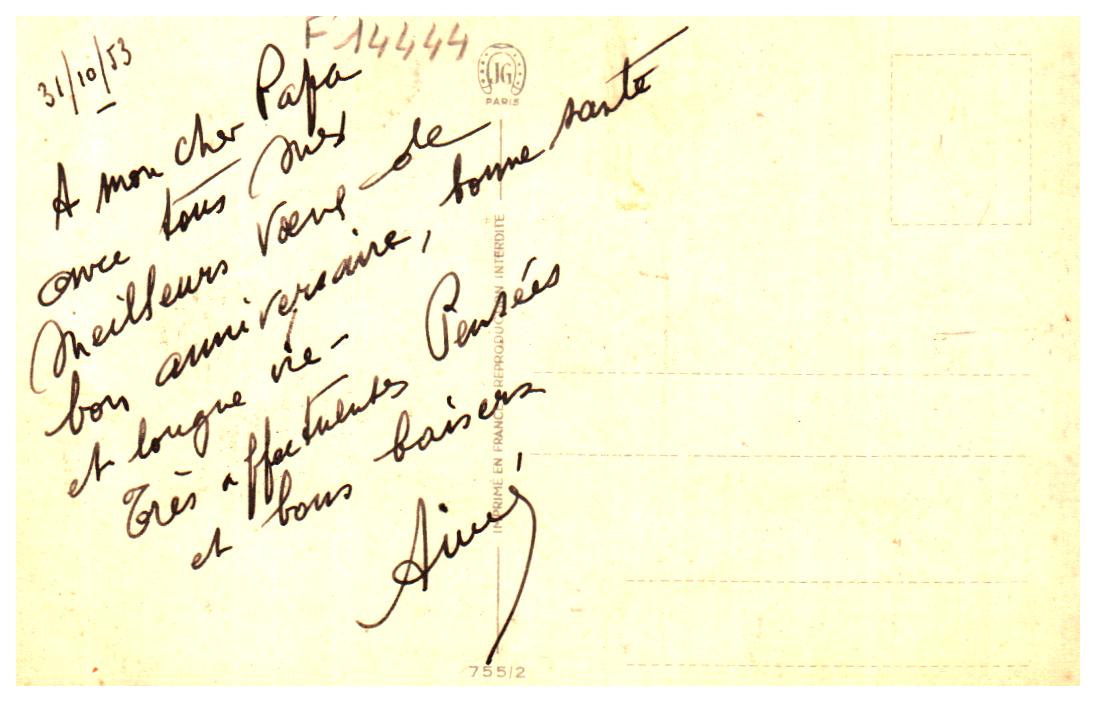 31/10/53
F 14444
JG
PARIS
A mon cher Papa
avec tous mes
Meilleurs vœux de
bon anniversaire, bonne santé
et longue vie - Pensées
Très affectueuses
et bons baisers
Aimé
IMPRIMÉ EN FRANCE REPRODUCTION INTERDITE
755/2